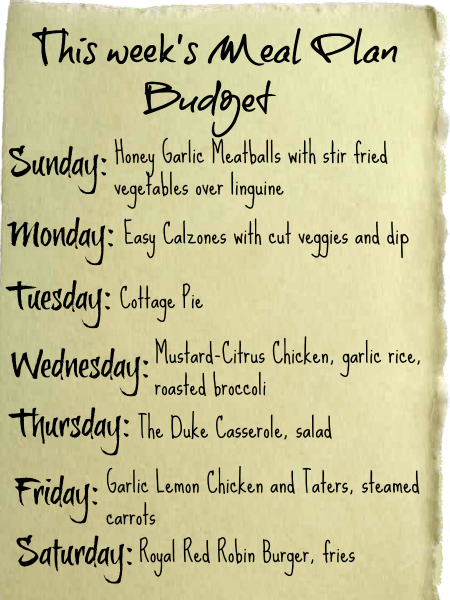 This week's Meal Plan
Budget
Sunday: Honey Garlic Meatballs with stir fried
vegetables over linguine
Monday: Easy Calzones with cut veggies and dip
Tuesday: Cottage Pie
Wednesday: Mustard-Citrus Chicken, garlic rice,
roasted broccoli
Thursday: The Duke Casserole, salad
Friday: Garlic Lemon Chicken and Taters, steamed
carrots
Saturday: Royal Red Robin Burger, fries